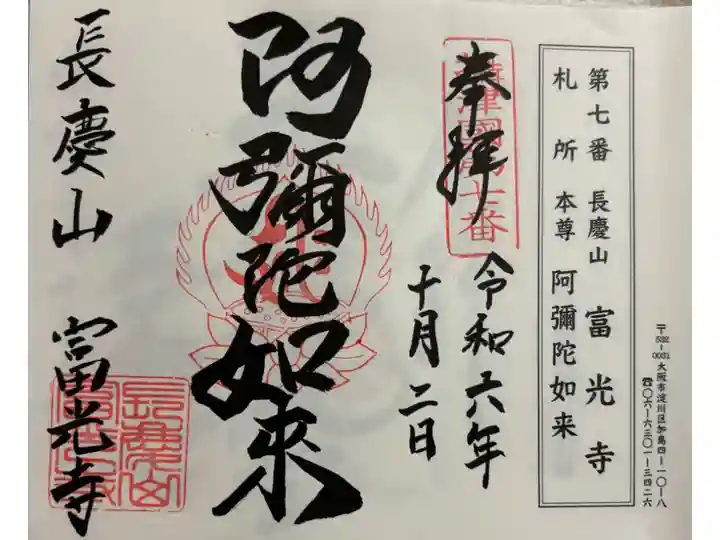 第七番 長慶山 富光寺
札所本尊 阿彌陀如来
〒532-0031 大阪市淀川区加島四-一〇-八
☎〇六-六三〇一-三四二六
奉拝
攝津國第七番
令和六年
十月二日
阿彌陀如来
長慶山 富光寺